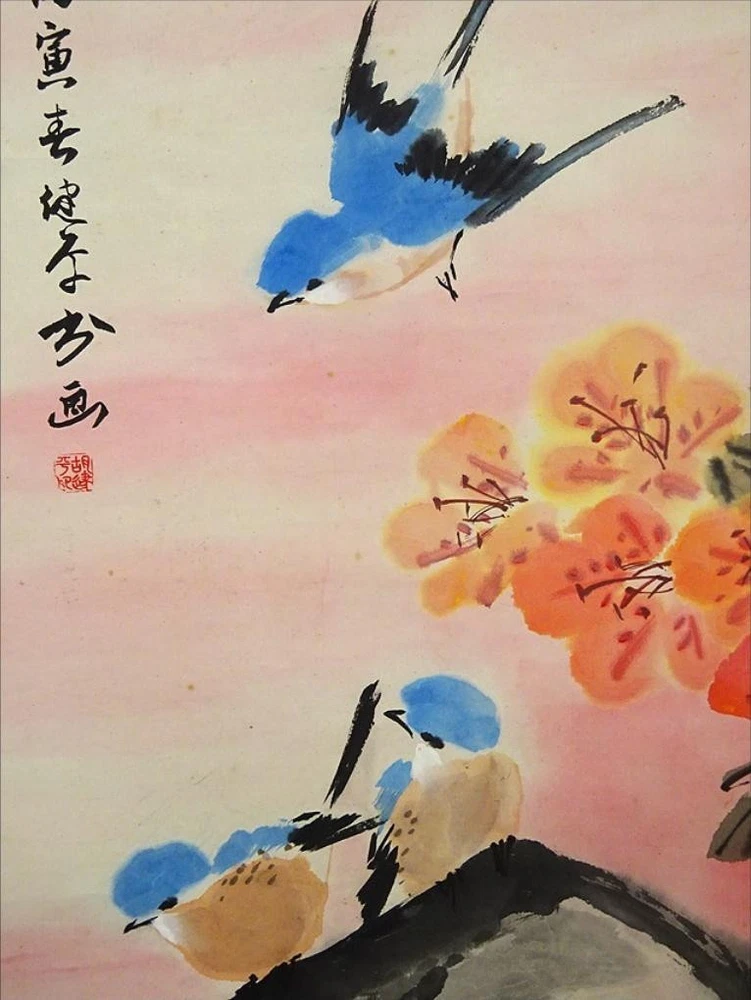 寅春健平书画
胡健平印